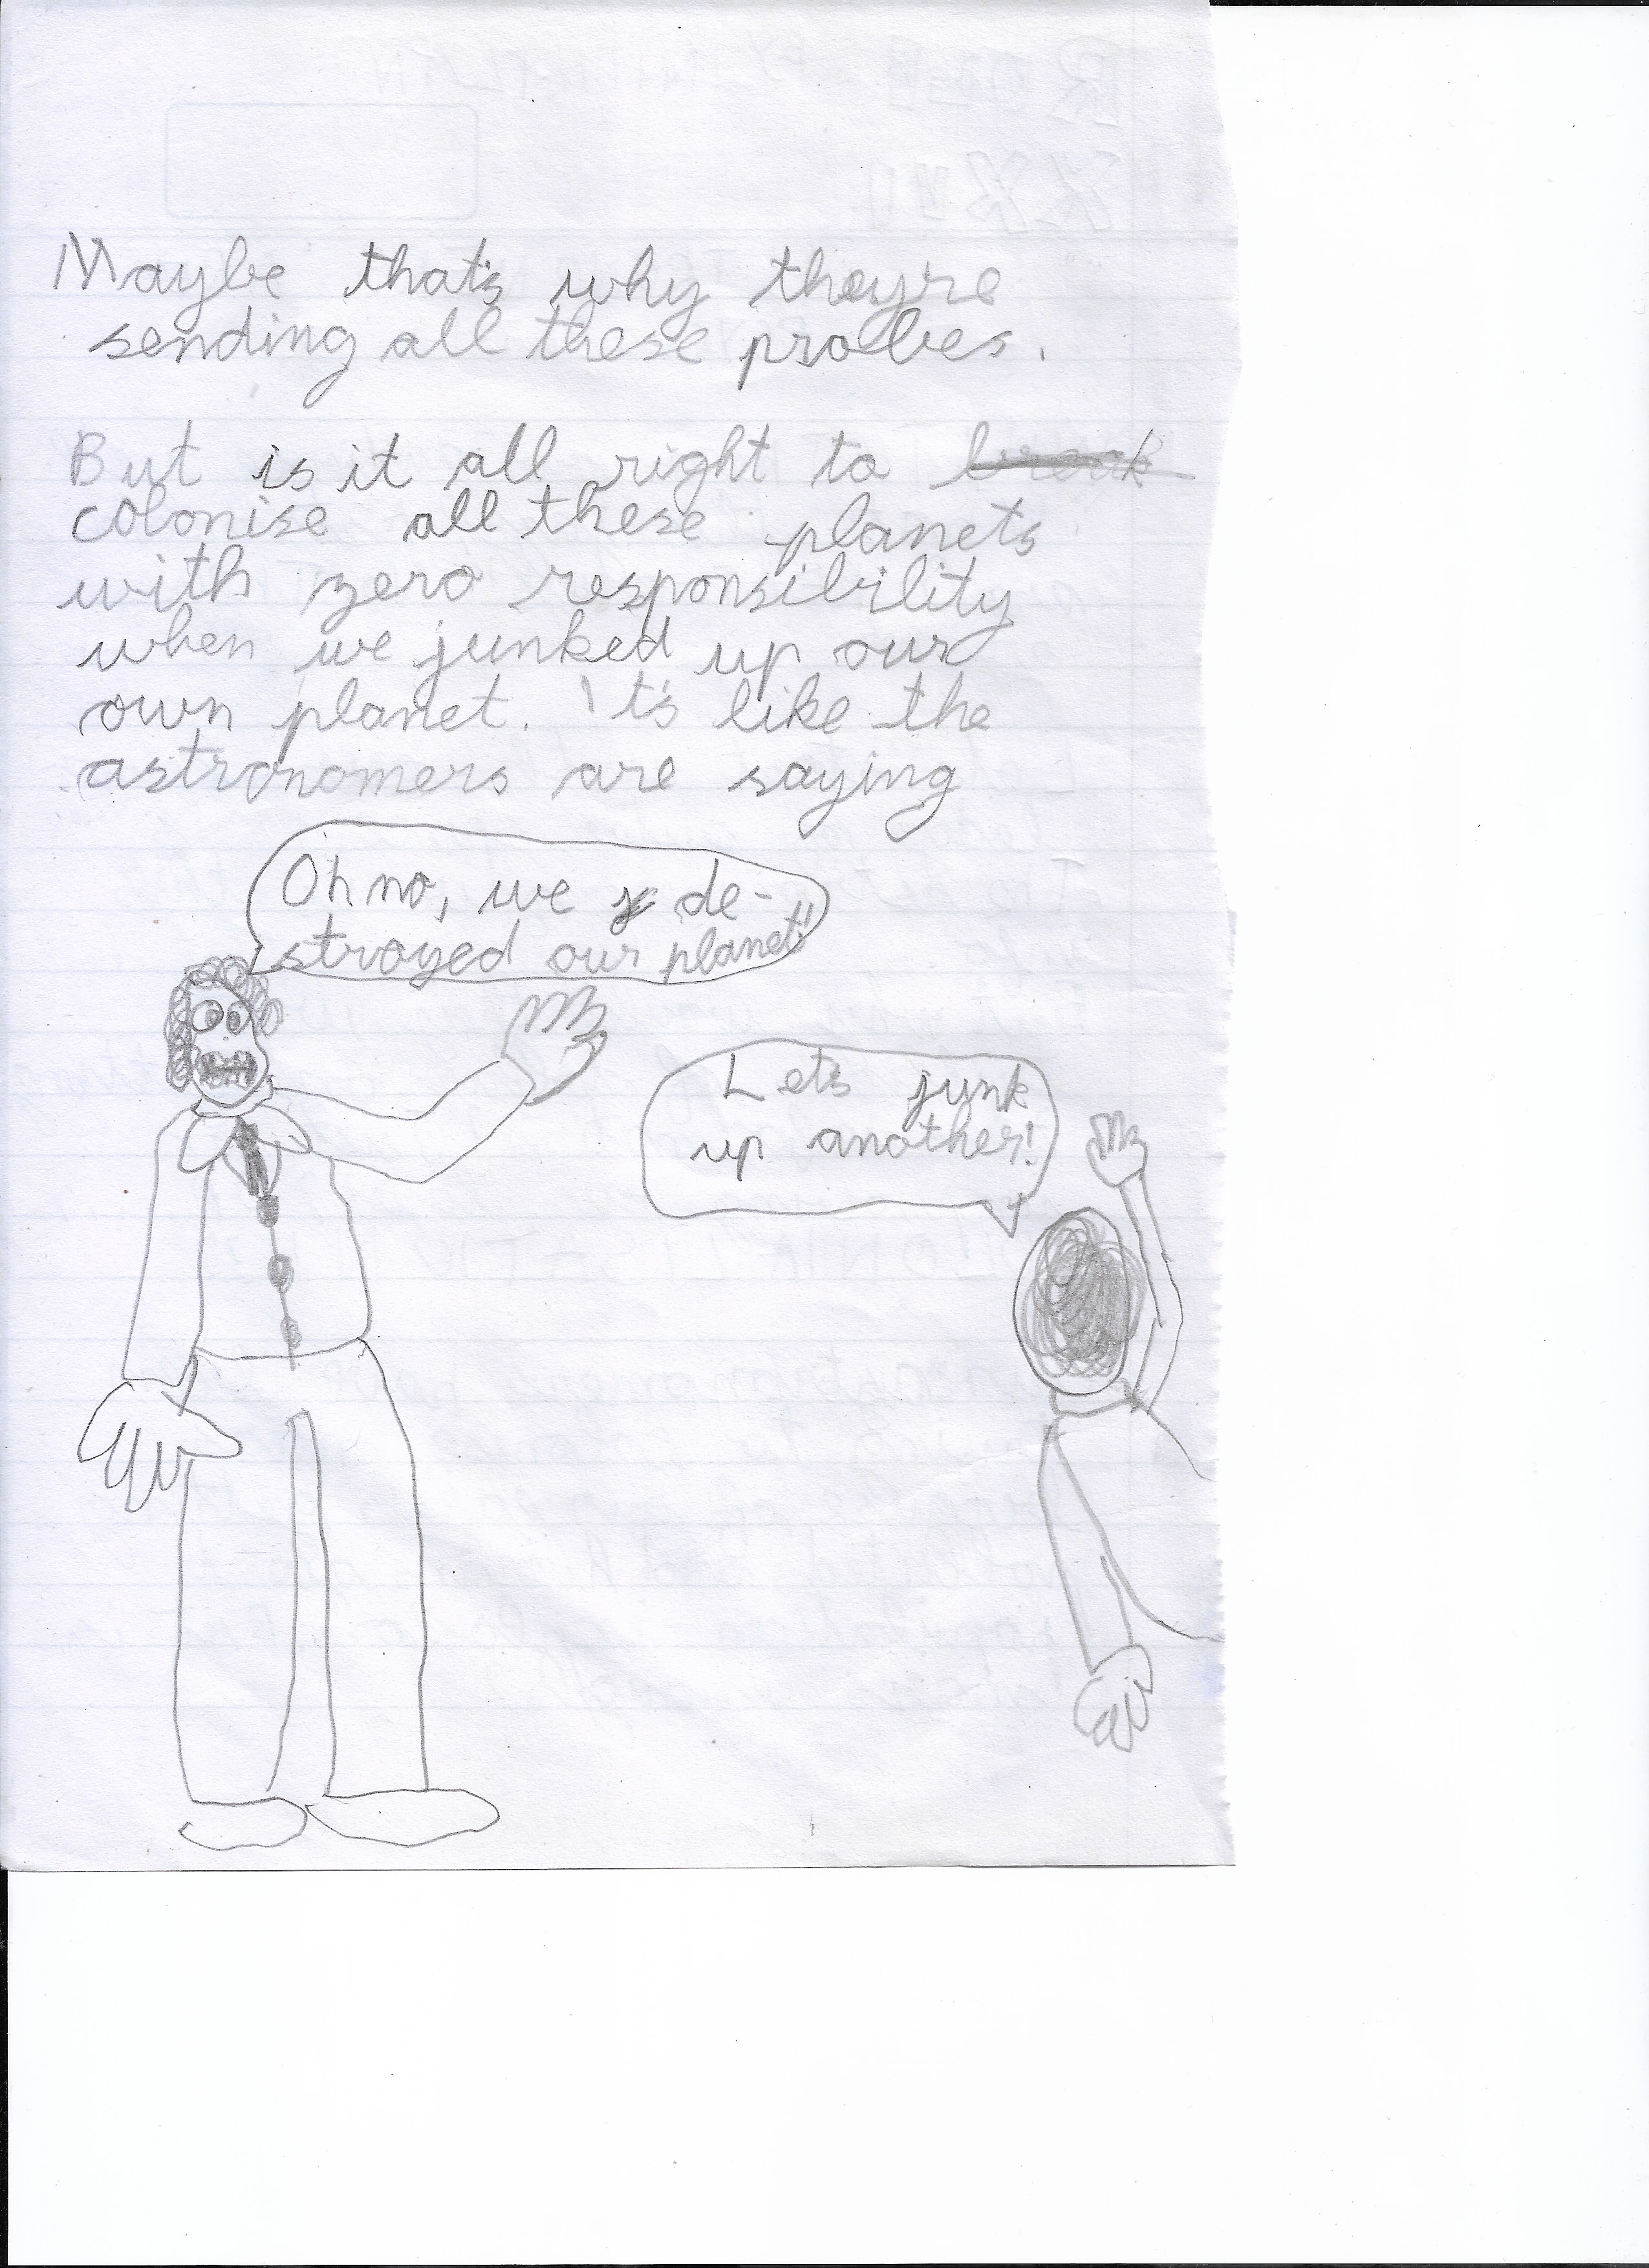 Maybe that's why they're
sending all these probes.
But is it all right to break
colonise all these planets
with zero responsibility
when we junked up our
own planet. It's like the
astronomers are saying
Oh no, we de-
stroyed our planet!!
Let's junk
up another!